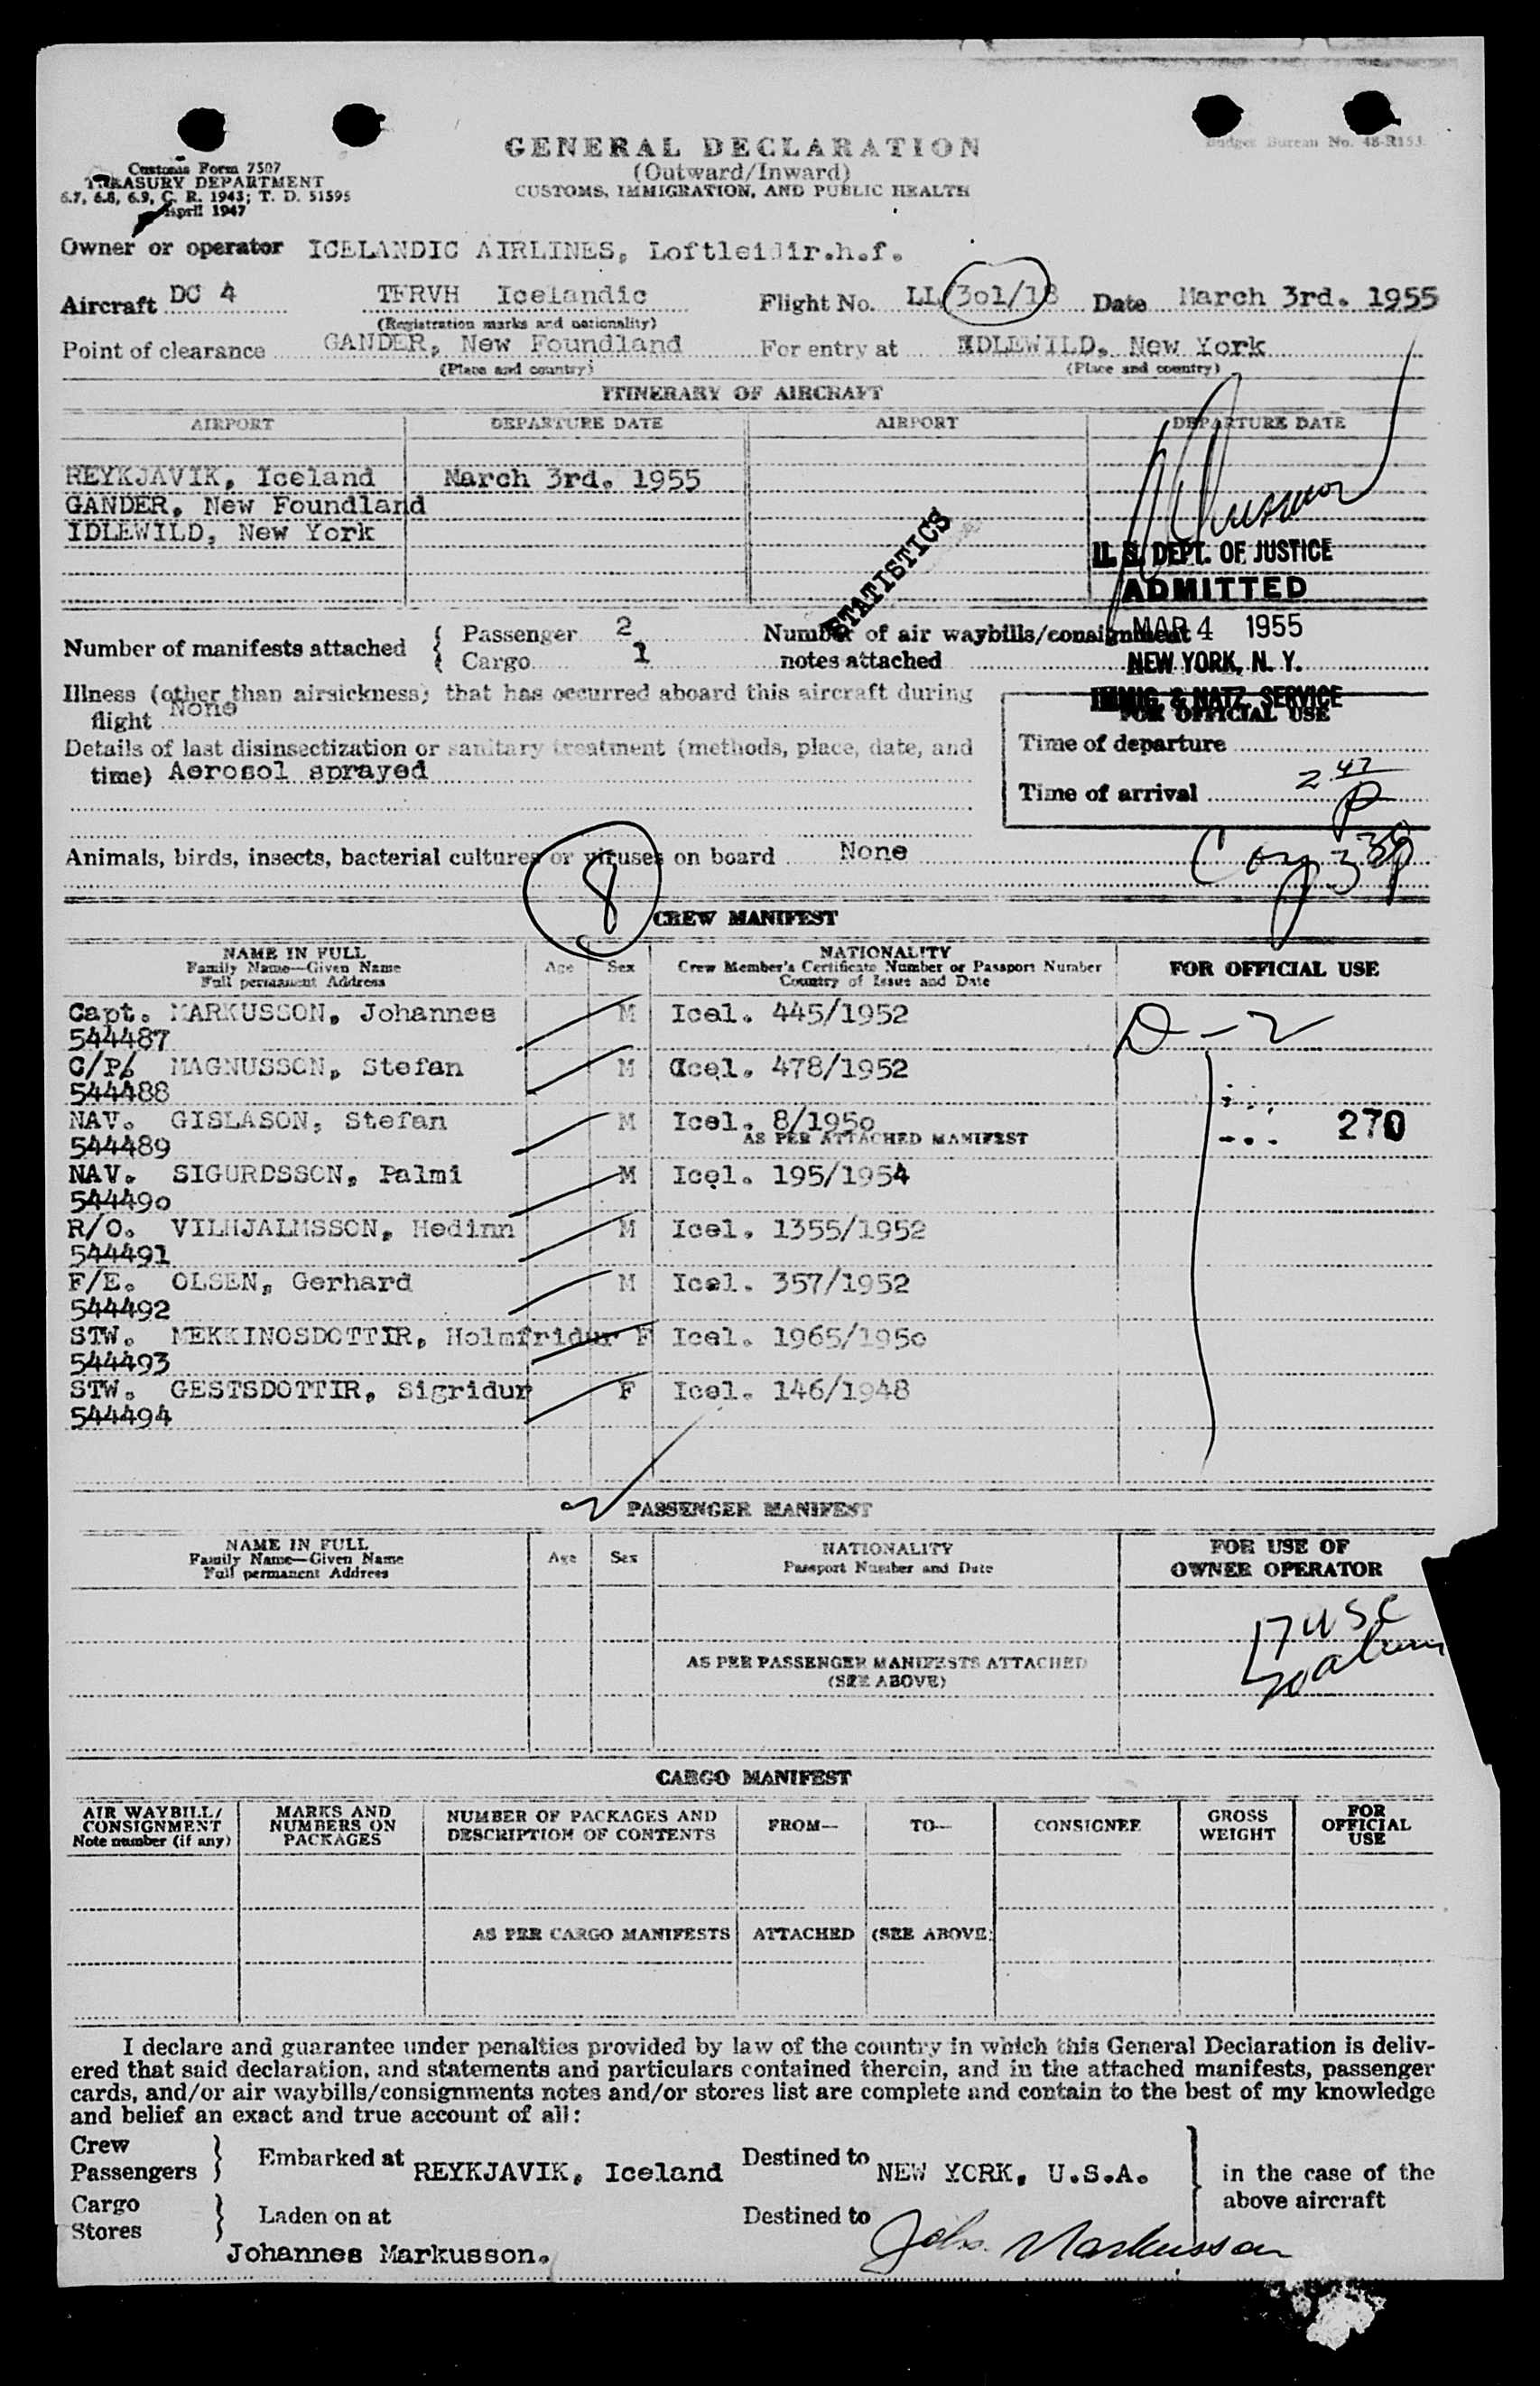 Customs Form 7507
TREASURY DEPARTMENT
6.7, 6.8, 6.9, C. R. 1943; T. D. 51595
April 1947
Budget Bureau No. 48-R153.
GENERAL DECLARATION
(Outward/Inward)
CUSTOMS, IMMIGRATION, AND PUBLIC HEALTH
Owner or operator ICELANDIC AIRLINES, Loftleidir.h.f.
Aircraft DC 4 TFRVH Icelandic Flight No. LL/3o1/18 Date March 3rd. 1955
(Registration marks and nationality)
Point of clearance GANDER, New Foundland For entry at IDLEWILD, New York
(Place and country) (Place and country)
ITINERARY OF AIRCRAFT
AIRPORT DEPARTURE DATE AIRPORT DEPARTURE DATE
REYKJAVIK, Iceland March 3rd. 1955
GANDER, New Foundland
IDLEWILD, New York
STATISTICS
U. S. DEPT. OF JUSTICE
ADMITTED
MAR 4 1955
NEW YORK, N. Y.
IMMIG. & NATZ. SERVICE
Number of manifests attached { Passenger 2
Cargo 1
Number of air waybills/consignment
notes attached
Illness (other than airsickness) that has occurred aboard this aircraft during
flight None
FOR OFFICIAL USE
Details of last disinsectization or sanitary treatment (methods, place, date, and
time) Aerosol sprayed
Time of departure
Time of arrival 2 47 P
Animals, birds, insects, bacterial cultures or viruses on board None
8
CREW MANIFEST
NAME IN FULL
Family Name—Given Name
Full permanent Address
Age Sex
NATIONALITY
Crew Member's Certificate Number or Passport Number
Country of Issue and Date
FOR OFFICIAL USE
Capt. MARKUSSON, Johannes M Icel. 445/1952 D-2
544487
C/P. MAGNUSSON, Stefan M Icel. 478/1952
544488
NAV. GISLASON, Stefan M Icel. 8/195o 270
AS PER ATTACHED MANIFEST
544489
NAV. SIGURDSSON, Palmi M Icel. 195/1954
54449o
R/O. VILHJALMSSON, Hedinn M Icel. 1355/1952
544491
F/E. OLSEN, Gerhard M Icel. 357/1952
544492
STW. MEKKINOSDOTTIR, Holmfridur F Icel. 1965/195o
544493
STW. GESTSDOTTIR, Sigridur F Icel. 146/1948
544494
PASSENGER MANIFEST
NAME IN FULL
Family Name—Given Name
Full permanent Address
Age Sex
NATIONALITY
Passport Number and Date
FOR USE OF
OWNER OPERATOR
17 USC
AS PER PASSENGER MANIFESTS ATTACHED
(SEE ABOVE)
CARGO MANIFEST
AIR WAYBILL/
CONSIGNMENT
Note number (if any)
MARKS AND
NUMBERS ON
PACKAGES
NUMBER OF PACKAGES AND
DESCRIPTION OF CONTENTS
FROM—
TO—
CONSIGNEE
GROSS
WEIGHT
FOR
OFFICIAL
USE
AS PER CARGO MANIFESTS ATTACHED (SEE ABOVE)
I declare and guarantee under penalties provided by law of the country in which this General Declaration is deliv-
ered that said declaration, and statements and particulars contained therein, and in the attached manifests, passenger
cards, and/or air waybills/consignments notes and/or stores list are complete and contain to the best of my knowledge
and belief an exact and true account of all:
Crew
Passengers } Embarked at REYKJAVIK, Iceland Destined to NEW YORK, U.S.A. } in the case of the
above aircraft
Cargo
Stores } Laden on at Destined to
Johannes Markusson. Johs. Markusson